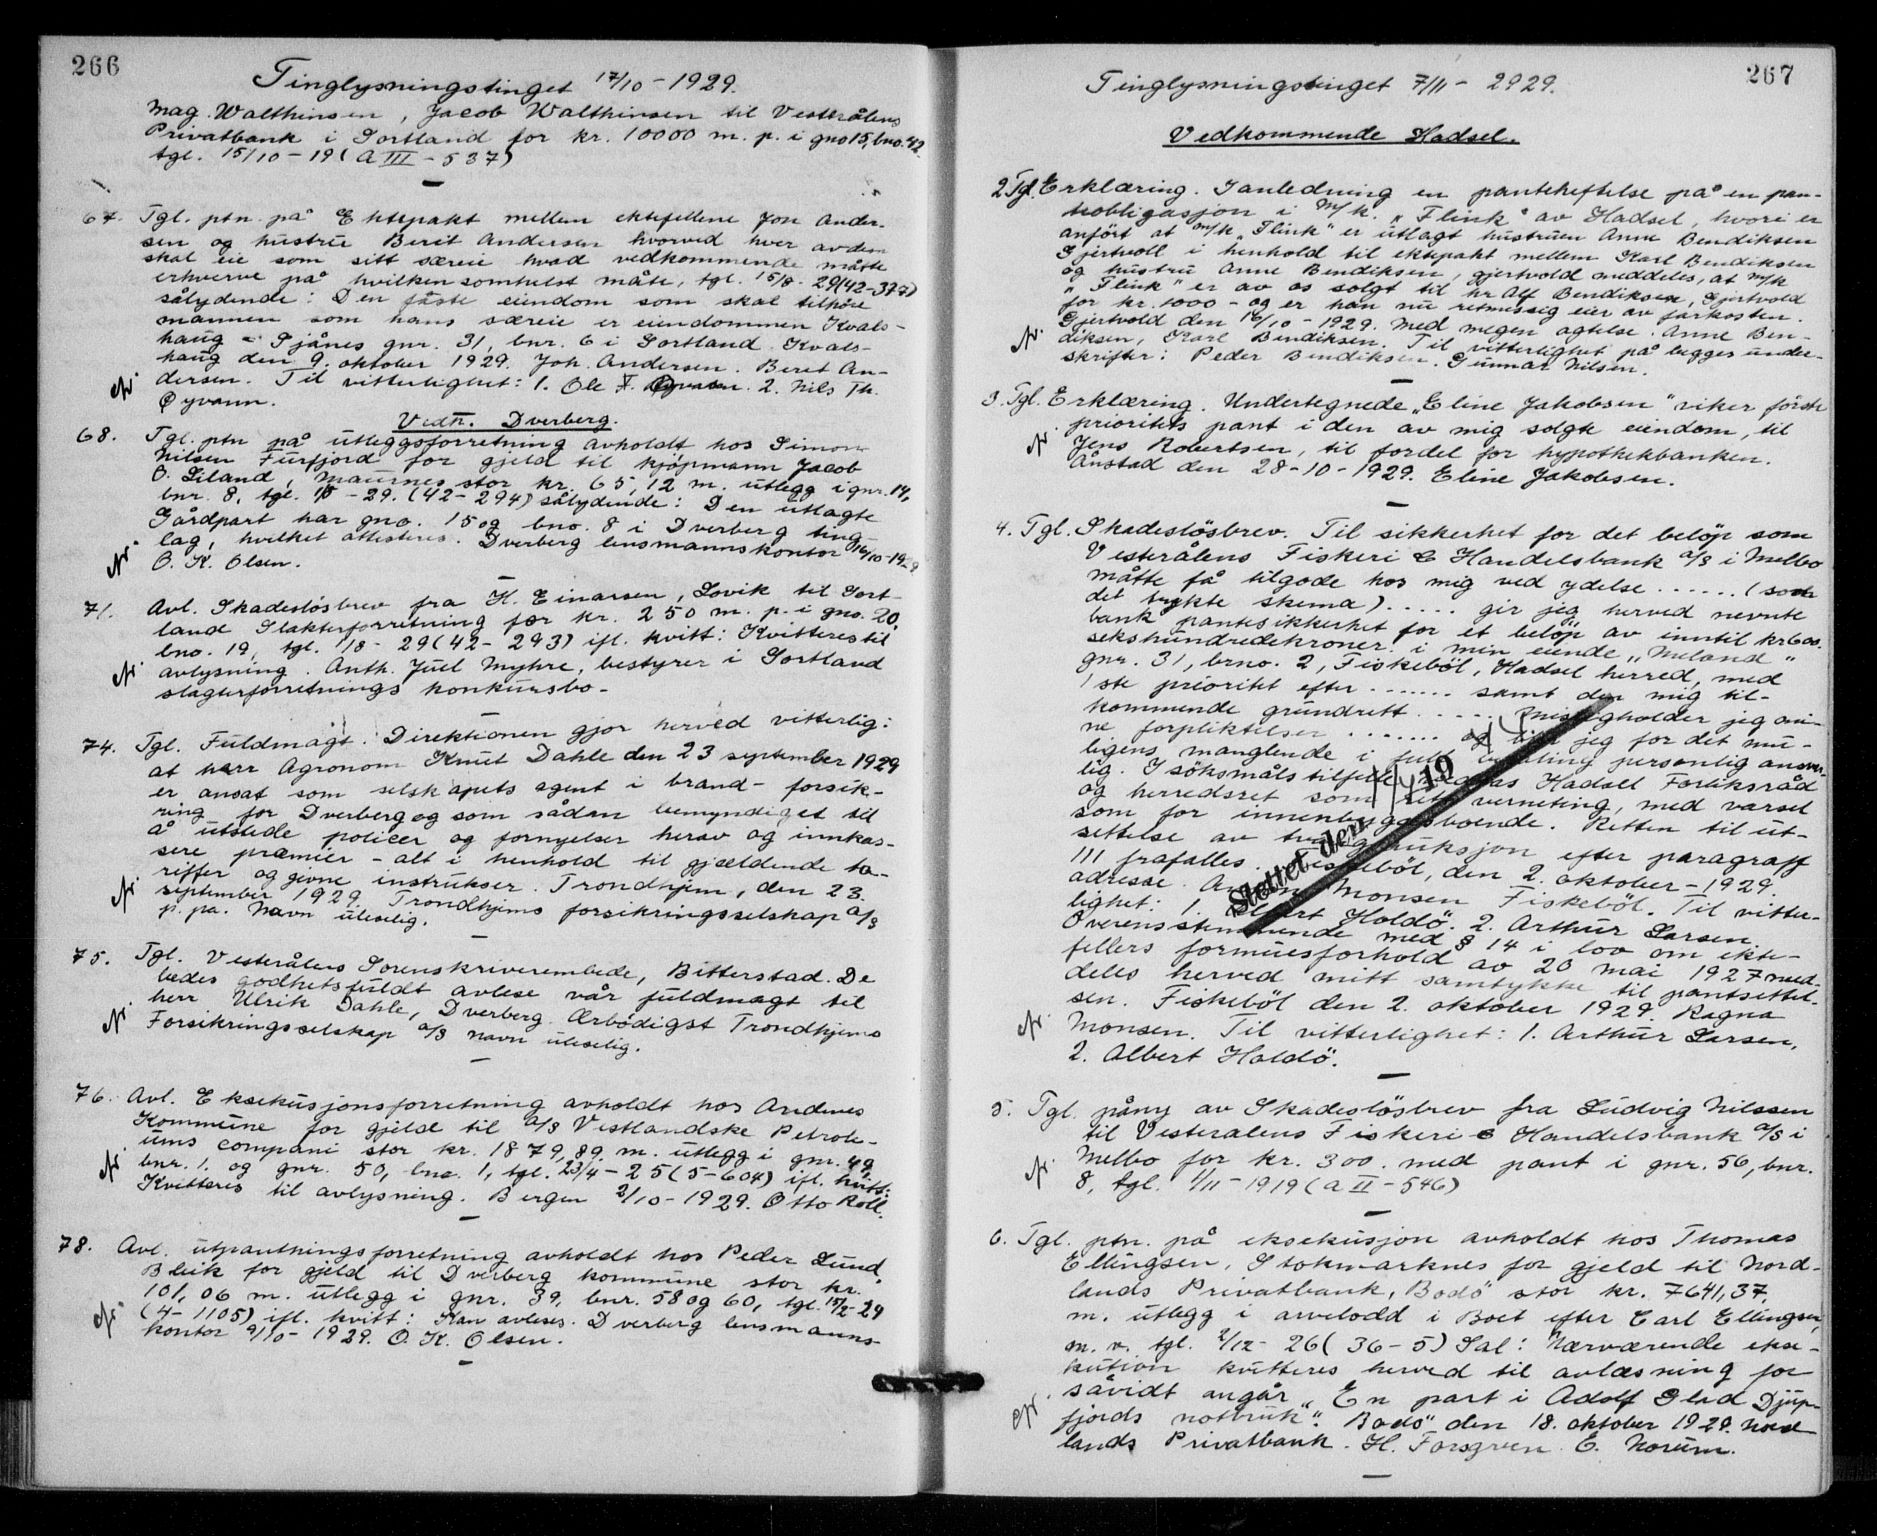 266
Tinglysningstinget 17/10 - 1929.
Mag. Walthinsen, Jacob Walthinsen til Vesterålens
Privatbank i Sortland for kr. 10000 m. p. i gno 15, bno. 42.
tgl. 15/10 - 19 (A III - 537)
67. Tgl. ptn. på Ektepakt mellem ektefellene Joh. Ander-
sen og hustru Berit Andersen hvorved hver av dem
skal eie som sitt særeie hvad vedkommende måtte
erhverve på hvilkensomhelst måte, tgl. 15/8 - 29 (42-377)
sålydende: Den faste eiendom som skal tilhøre
mannen som hans særeie er eiendommen Kvals-
haug - Sjånes gnr. 31, bnr. 6 i Sortland. Kvals-
haug den 9. oktober 1929. Joh. Andersen. Beret An-
dersen. Til vitterlighet: 1. Ole T. 2. Nils Th.
Øyvann.
Vedk. Dverberg.
68. Tgl. ptn på utleggsforretning avholdt hos Simon
Nilsen Furfjord for gjeld til kjøpmann Jacob
O. Liland, Maurnes stor kr. 65,12 m. utlegg i gnr. 14,
bnr. 8, tgl. - 29. (42-294) sålydende: Den utlagte
Gårdpart har gno. 15 og bno. 8 i Dverberg ting-
lag, hvilket attesteres. Dverberg lensmannskontor 16/10-1929
O. K. Olsen.
71. Avl. Skadesløsbrev fra H. Einarsen, Lovik til Sort-
land Slakterforretning for kr. 250 m. p. i gno. 20,
bno. 19, tgl. 1/8 - 29 (42-293) ifl. kvitt: Kvitteres til
avlysning. Anth. Juel Myhre, bestyrer i Sortland
slagterforretnings konkursbo.
74. Tgl. Fuldmagt. Direktionen gjor herved vitterlig:
at herr Agronom Knut Dahle den 23 september 1929
er ansat som selskapets agent i brand- forsik-
ring for Dverberg og som sådan bemyndiget til
å utstede policer og fornyelser herav og innkas-
sere præmier - alt i henhold til gjældende ta-
riffer og givne instrukser. Trondhjem, den 23.
september 1929. Trondhjems forsikringsselskap A/S
p. pa. Navn uleselig.
75. Tgl. Vesterålens Sorenskriverembede, Bitterstad. De
bedes godhetsfuldt avlese vår fuldmagt til
herr Ulrik Dahle, Dverberg. Ærbödigst Trondhjems
Forsikringsselskap A/S navn uleselig.
76. Avl. Eksekusjonsforretning avholdt hos Andenes
Kommune for gjeld til A/S Vestlandske Petrole-
ums compani stor kr. 1879,89. m. utlegg i gnr. 49
bnr. 1. og gnr. 50, bno. 1, tgl. 23/4 - 25 (5-604) ifl. kvitt:
Kvitteres til avlysning. Bergen 2/10 - 1929. Otto Roll.
78. Avl. utpantningsforretning avholdt hos Peder Lund,
Bleik for gjeld til Dverberg kommune stor kr.
101,06 m. utlegg i gnr. 39, bnr. 58 og 60, tgl. 15/2 - 29
(4-1105) ifl. kvitt: Kan avleses. Dverberg lensmanns-
kontor 9/10 - 1929. O. K. Olsen.
267
Tinglysningstinget 7/11 - 2929.
Vedkommende Hadsel.
2. Tgl. Erklæring. I anledning en panteheftelse på en pan-
teobligasjon i m/k. "Flink" av Hadsel, hvori er
anført at m/k "Flink" er utlagt hustruen Anne Bendiksen
Gjertvoll i henhold til ektepakt mellem Karl Bendiksen
og hustru Anne Bendiksen, Gjertvold meddeles, at m/k
"Flink" er av os solgt til hr Alf Bendiksen, Gjertvold
for kr. 1000 - og er han nu retmessig eier av farkosten.
Gjertvold den 16/10 - 1929. Med megen agtelse. Anne Ben-
diksen, Karl Bendiksen. Til vitterlighet på legges under-
skrifter: Peder Bendiksen. Gunnar Nilsen.
3. Tgl. Erklæring. Undertegnede "Eline Jakobsen" viker förste
prioritets pant i den av mig solgte eiendom, til
Jens Robertsen, til fordel for hypothekbanken.
Ånstad den 28-10-1929. Eline Jakobsen.
4. Tgl. Skadeslösbrev. Til sikkerhet for det belöp som
Vesterålens Fiskeri & Handelsbank A/S i Melbo
måtte få tilgode hos mig ved ydelse ...... (som
det trykte skema) ..... gir jeg herved nevnte
bank pantesikkerhet for et belöp av inntil kr 600.
sekshundredekroner. i min eiende "Meland"
gnr. 31, brno. 2, Fiskeböl, Hadsel herred, med
1ste prioritet efter ....... samt den mig til-
kommende grundrett ..... misligholder jeg mi-
ne forpliktelser ....... og jeg for det mu-
ligens manglende i full betaling personlig ansvar-
lig. I söksmålstilfelle Hadsel Forliksråd
og herredsret som rett verneting, med varsel
som for innenbyggsboende. Retten til ut-
settelse av efter paragraff
111 frafalles. Fiskeböl, den 2. oktober - 1929.
adresse. Monsen Fiskeböl. Til vitter-
lighet: 1. Albert Holdö. 2. Arthur Larsen.
Overensstemmende med § 14 i lov om ekte-
fellers formuesforhold av 20 mai 1927 med-
deles herved mitt samtykke til pantsettel-
sen. Fiskeböl den 2. oktober 1929. Ragna
Monsen. Til vitterlighet: 1. Arthur Larsen,
2. Albert Holdö.
Slettet den 19
5. Tgl. påny av Skadeslösbrev fra Ludvig Nilssen
til Vesteralens Fiskeri & Handelsbank A/S i
Melbo for kr. 300. med pant i gnr. 56, bnr.
8, tgl. 1/11 - 1919 (A II - 546)
6. Tgl. ptn. på eksekusjon avholdt hos Thomas
Ellingsen, Stokmarknes for gjeld til Nord-
lands Privatbank, Bodö stor kr. 7641,37,
m. utlegg i arvelodd i Boet efter Carl Ellingsen
m. v. tgl. 2/12 - 26 (36-5) Sal: Nærværende ekse-
kution kvitteres herved til avlæsning for
såvidt angår "En part i Adolf Glad Djup-
fjords notbruk". Bodö den 18. oktober 1929. Nord-
lands Privatbank. H. Forsgren. E. Norum.